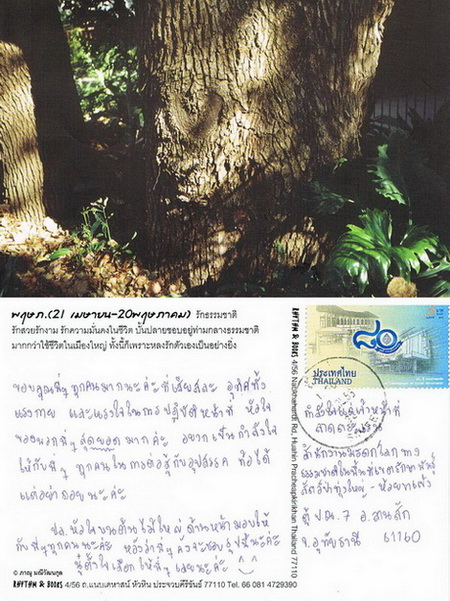 พฤษภ.(21 เมษายน-20พฤษภาคม) รักธรรมชาติ
รักสวยรักงาม รักความมั่นคงในชีวิต บั้นปลายชอบอยู่ท่ามกลางธรรมชาติ
มากกว่าใช้ชีวิตในเมืองใหญ่ ทั้งนี้ก็เพราะหลงรักตัวเองเป็นอย่างยิ่ง
ขอบคุณพี่ๆ ทุกคนมากนะค่ะ ที่เสียสละ อุทิศทั้ง
แรงกาย และแรงใจในการปฏิบัติหน้าที่ หัวใจ
ของพวกพี่ๆ สุดยอด มากค่ะ อยากเป็นกำลังใจ
ให้กับพี่ๆ ทุกคน ในการต่อสู้กับอุปสรรค ท้อได้
แต่อย่าถอยนะค่ะ
ปล. หัวใจบนต้นไม้ใหญ่ ด้านหน้ามอบให้
กับพี่ๆทุกคนนะค่ะ หวังว่าพี่ๆ คงจะชอบรูปนี้นะค่ะ
นู๋ตั้งใจเลือกให้พี่ๆ เลยนะค่ะ
© ภาณุ มณีวัฒนกุล
RHYTHM & BOOKS 4/56 ถ.แนบเคหาสน์ หัวหิน ประจวบคีรีขันธ์ 77110 Tel. 66 081 4729390
RHYTHM & BOOKS 4/56 Naebkehardt Rd., Huahin Prachaupkirikhan Thailand 77110
๘๐
ประเทศไทย
THAILAND
ลาดตระเวน
สำนักงานมรดกโลกทาง
ธรรมชาติในพื้นที่เขตรักษาพันธุ์
สัตว์ป่าทุ่งใหญ่ - ห้วยขาแข้ง
ตู้ ปณ. 7 อ.ลานสัก
จ.อุทัยธานี 61160